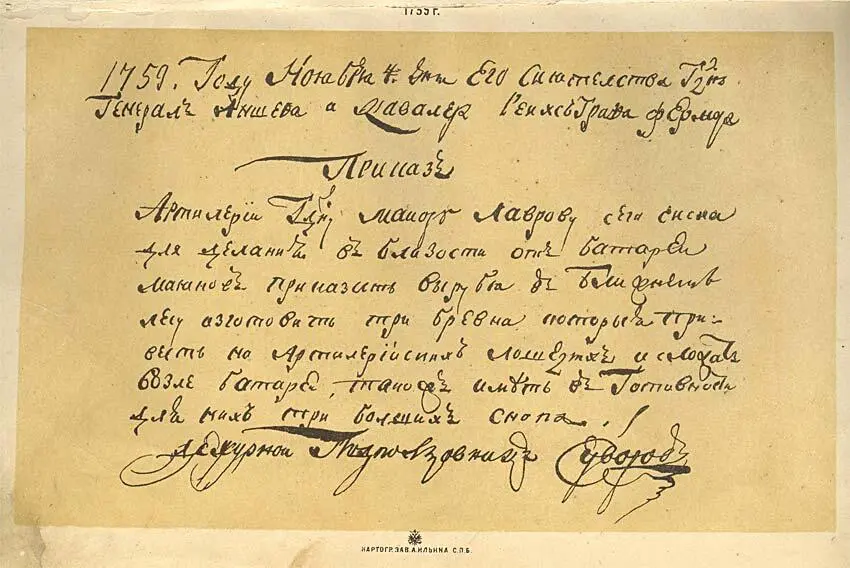 1759 г.
1759. Году Ноября 4. дня Его Сиятелства Гдна
Генералъ Аншева и Кавалера Рейхсъ Графа фермора
Приказъ
Артилерїи Гдну маиору Лаврову сего числа
для делания въ близости отъ батареи
приказать вырубя въ ближнемъ
лесу изготовить три бревна которыя при:
весть на Артилерїйскихъ лошедяхъ и скласть
возле батареи, такожъ иметь въ Готовности
для нихъ три болшихъ снопа.
дежурной Подполковникъ Суворовъ
КАРТОГР. ЗАВ. А. ИЛЬИНА С.П.Б.